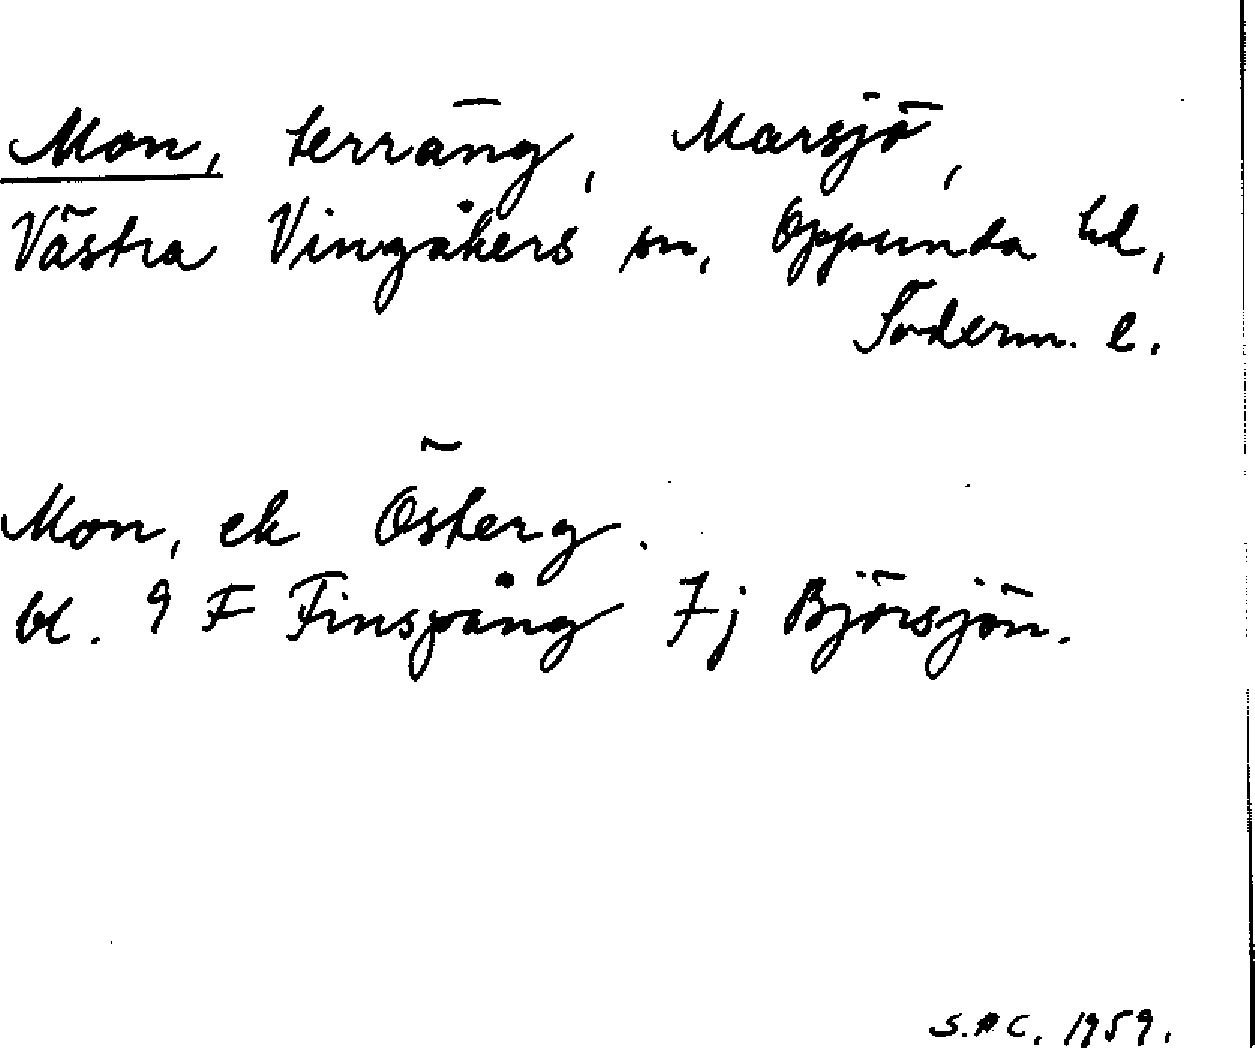 Mon, terräng, Marsjö,
Västra Vingåkers sn, Oppunda hd,
Söderm. l.
Mon, ek Österg.
bl. 9 F Finspång 7j Björsjön.
S.A.C. 1959.